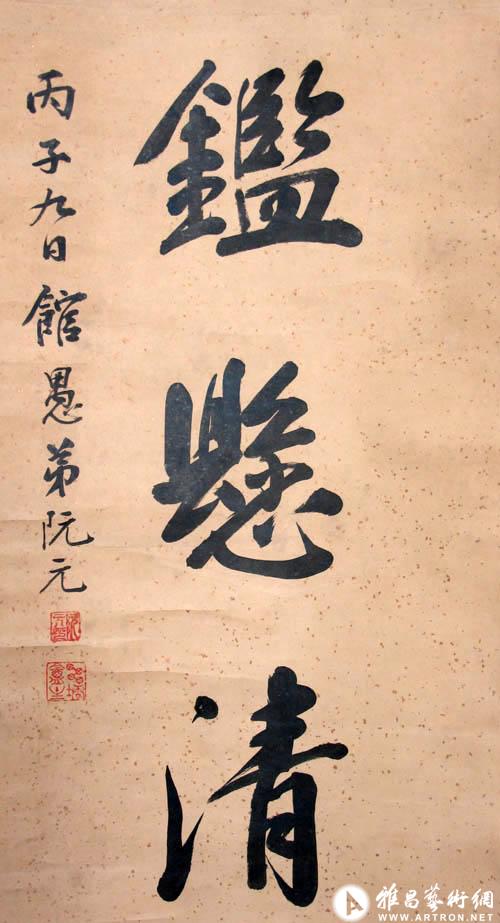 鑑懸清
丙子九日館愚弟阮元
雅昌藝術網
WWW.ARTRON.NET